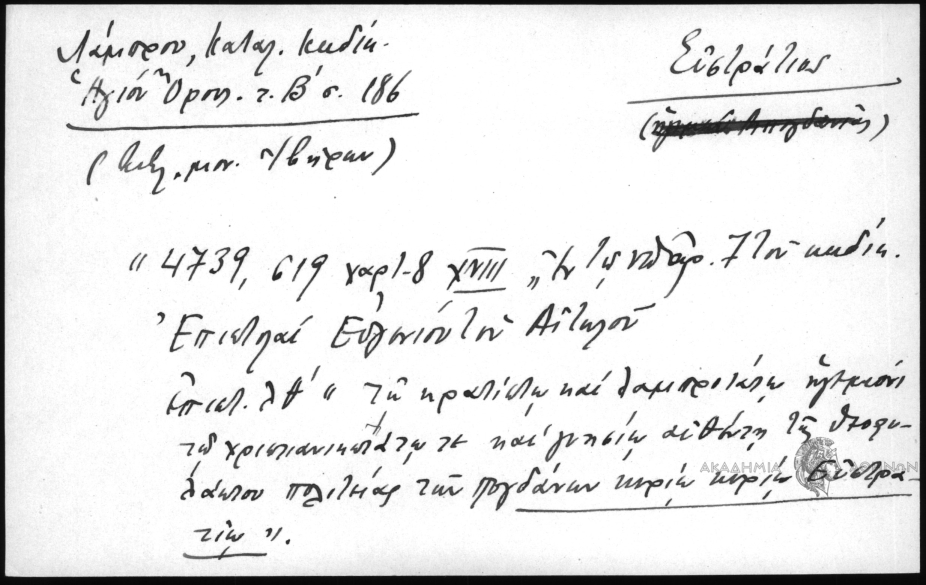 Λάμπρου, Καταλ. Κωδίκ.
Ἁγίου Ὄρους. τ. Β' σ. 186
Εὐστράτιος
(κωδ. μον. Ἰβήρων)
" 4739, 619 χαρτ-8 XVIII , Ἐν τῷ ἀριθ. 7 τοῦ κώδικ.
Ἐπιστολαί Εὐγενίου τοῦ Αἰτωλοῦ
ἐπιστ. λθ' " τῷ κρατίστῳ καί λαμπροτάτῳ ἡγεμόνι
τῷ χριστιανικωτάτῳ τε καί γνησίῳ αὐθέντῃ τῆς θεοφυ-
λάκτου πολιτείας τῶν Μπογδάνων κυρίῳ κυρίῳ Εὐστρα-
τίῳ ".
ΑΚΑΔΗΜΙΑ ΑΘΗΝΩΝ